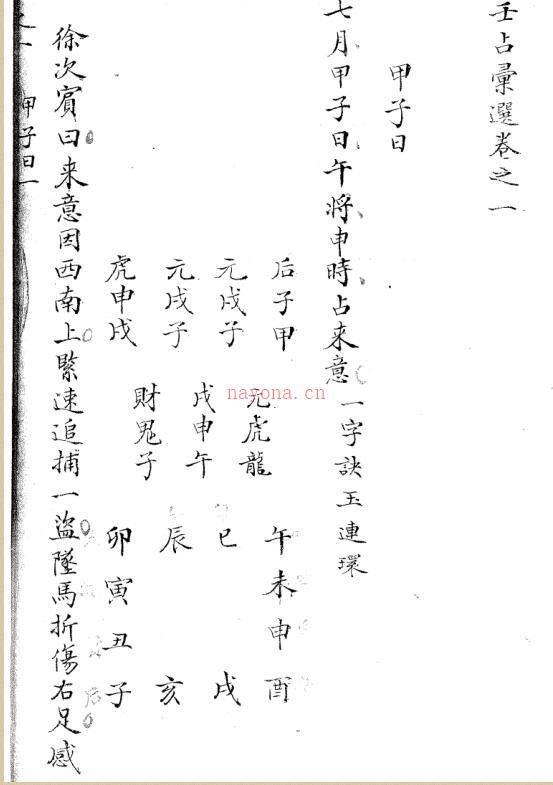 壬占彙選卷之一
甲子日
七月甲子日午将申時占来意一字訣玉連環
后子甲
元戌子
元戌子
虎申戌
元虎龍
戌申午
財鬼子
午未申酉
巳 戌
辰 亥
卯寅丑子
徐次賓曰来意因西南上緊速追捕一盜墜馬折傷右足感
甲子日一
nayona.cn